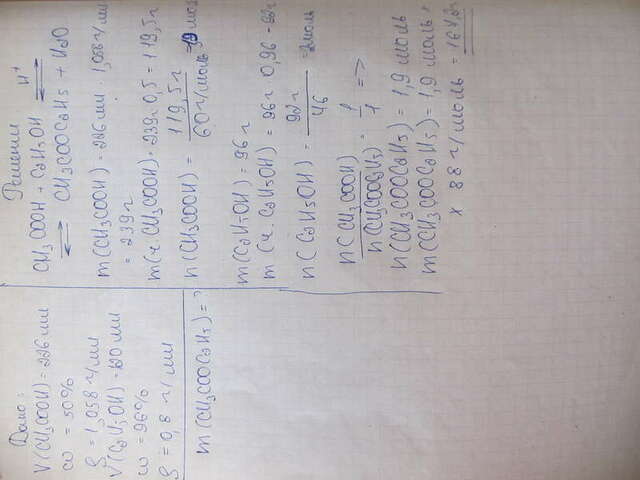 Дано:
V(CH3COOH) = 226 мл
ω = 50%
ρ = 1,058 г/мл
V(C2H5OH) = 120 мл
ω = 96%
ρ = 0,8 г/мл
m(CH3COOC2H5) = ?
Решение
CH3COOH + C2H5OH H+ ⇄
⇄ CH3COOC2H5 + H2O
m(CH3COOH) = 226 мл · 1,058 г/мл
= 239 г
m(ч. CH3COOH) = 239 · 0,5 = 119,5 г
n(CH3COOH) = 119,5 г / 60 г/моль =
m(C2H5OH) = 96 г
m(ч. C2H5OH) = 96 г · 0,96 = 92 г
n(C2H5OH) = 92 г / 46 = 2 моль
n(CH3COOH) / n(CH3COOC2H5) = 1 / 1 =>
n(CH3COOC2H5) = 1,9 моль
m(CH3COOC2H5) = 1,9 моль ·
× 88 г/моль = 167,2 г